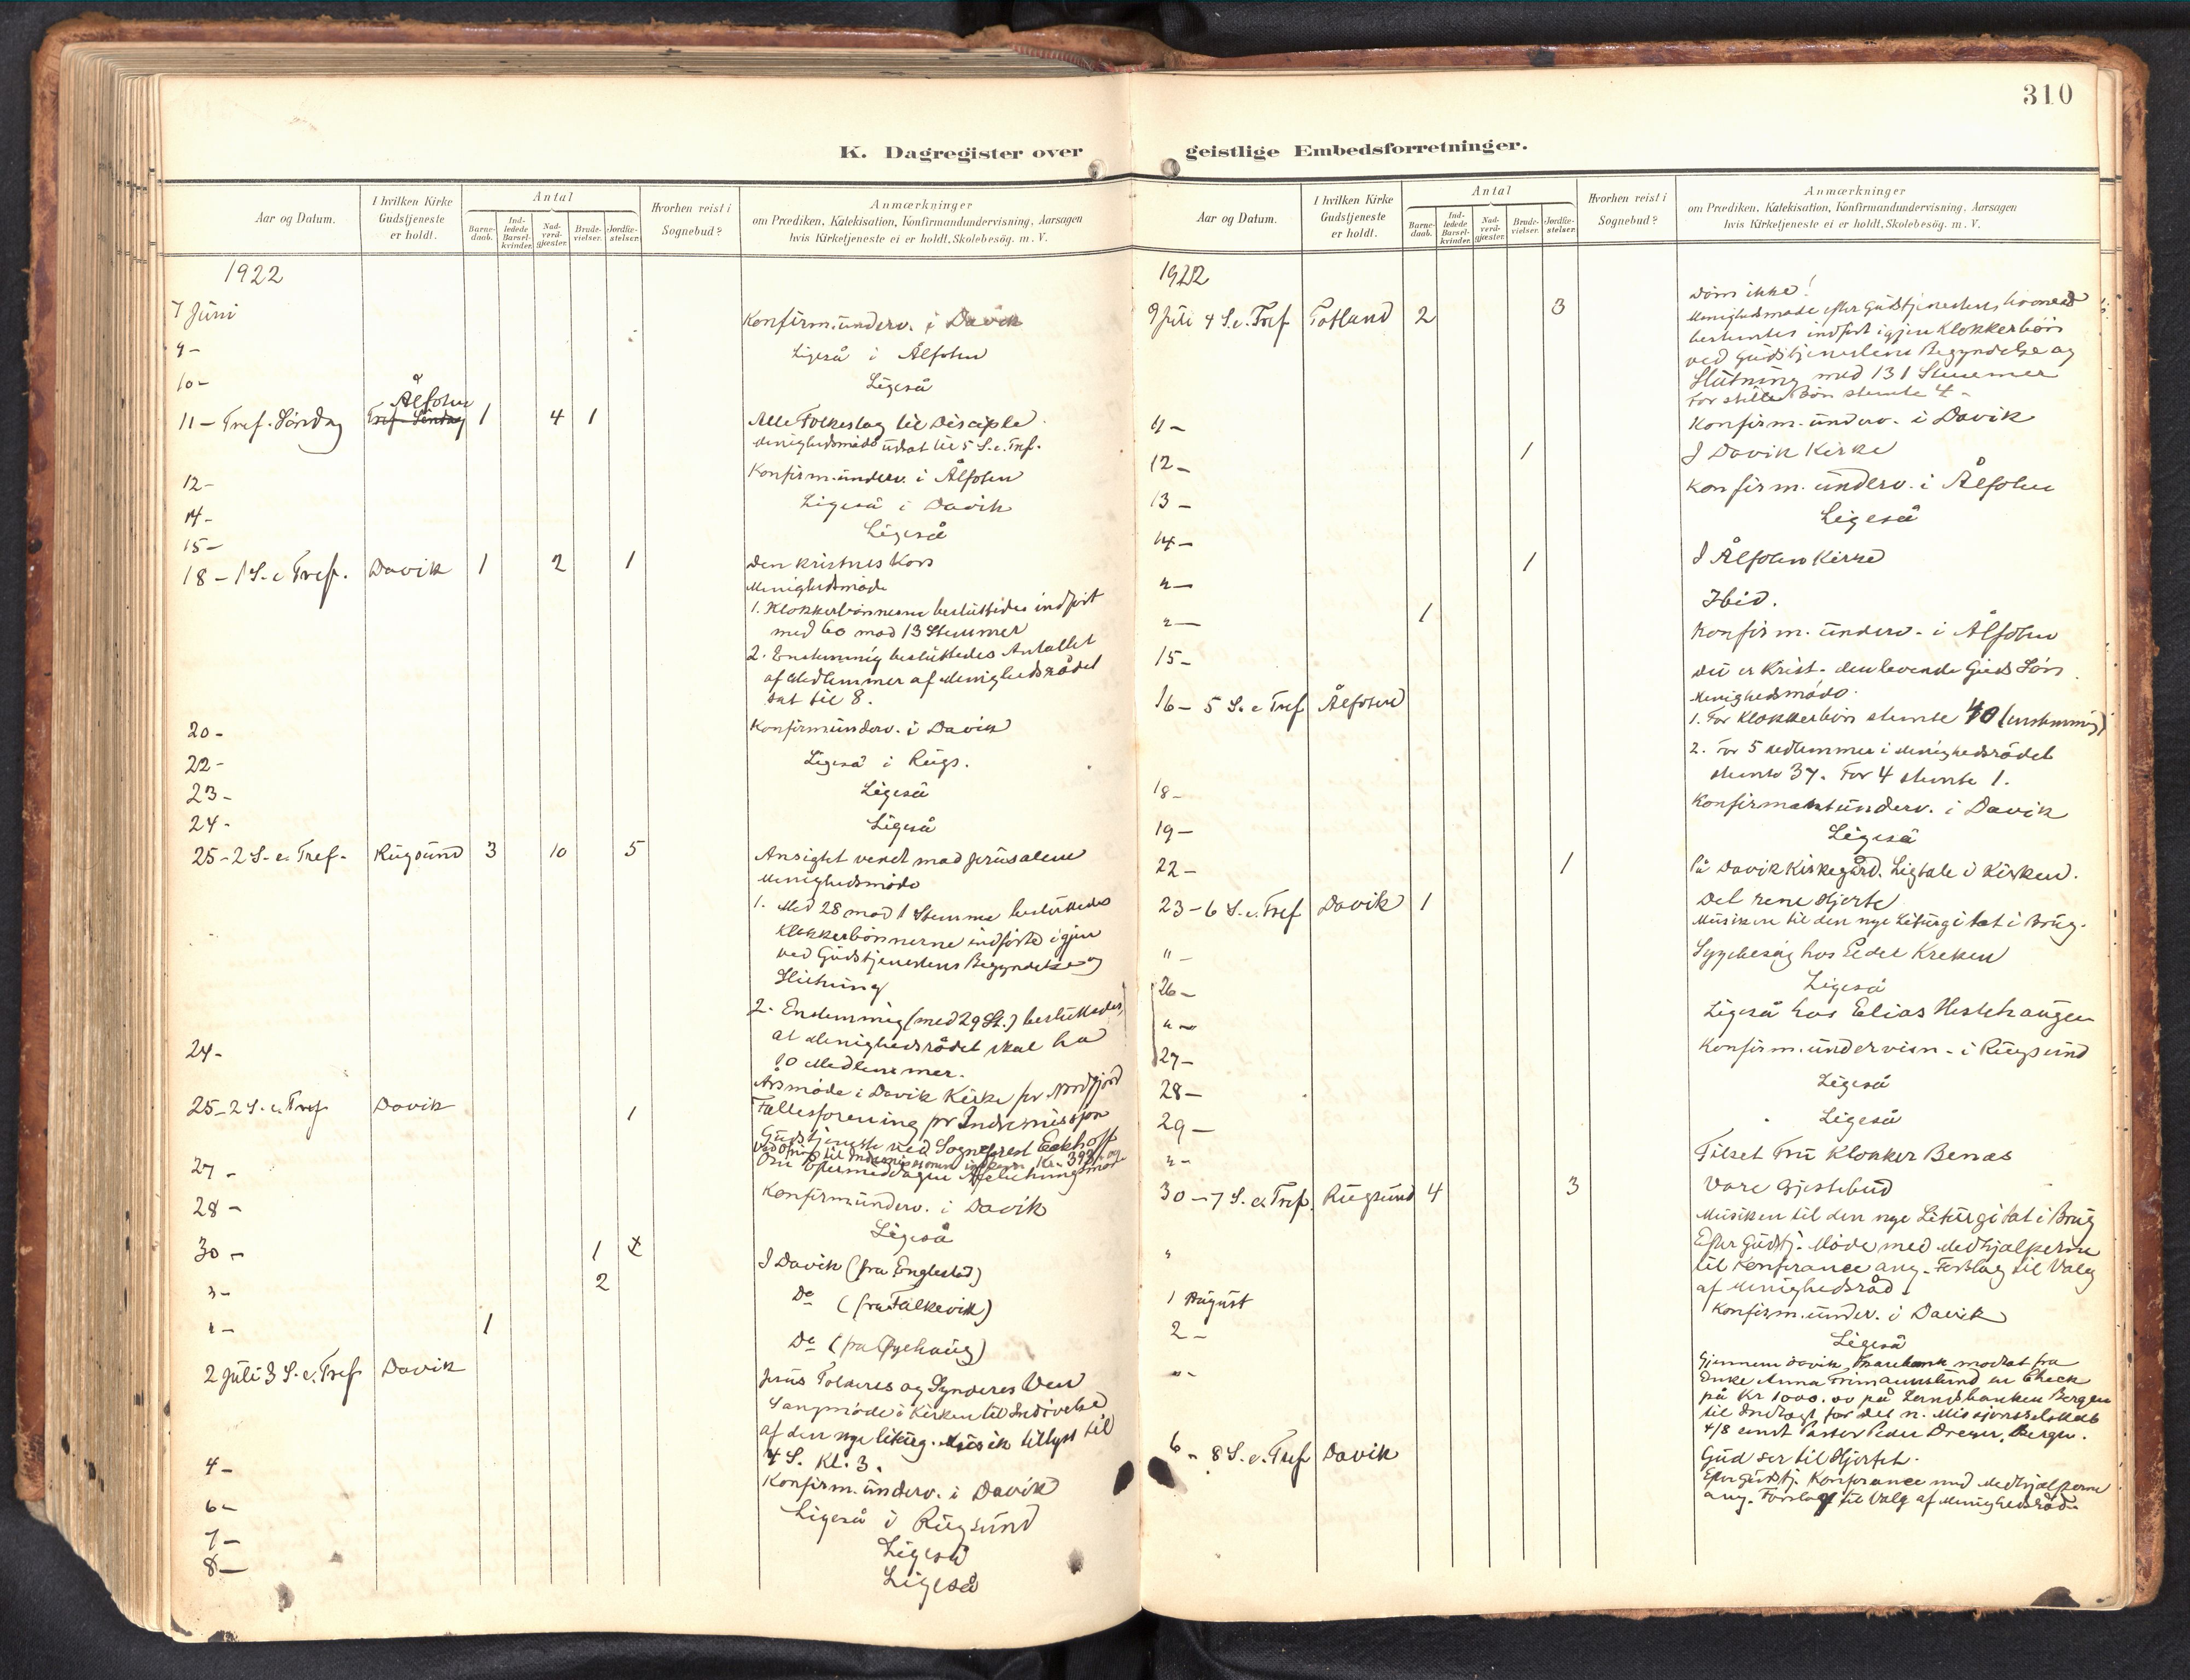 310
K. Dagregister over
Aar og Datum.
I hvilken Kirke Gudstjeneste er holdt.
Antal
Barnedaab.
Indledede Barselkvinder.
Nadverdgjester.
Brudevielser.
Jordfæstelser.
Hvorhen reist i Sognebud?
Anmærkninger
om Prædiken, Katekisation, Konfirmandundervisning, Aarsagen
hvis Kirketjeneste ei er holdt, Skolebesög. m. V.
1922
7 Juni Konfirm.underv. i Davik
9 - Ligeså i Ålfoten
10 - Ligeså
11 - Tref. Söndag Ålfoten 1 4 1 Alle Folkeslag til Disciple
Menighedsmöde udsat til 5 S. e. Tref.
12 - Konfirm.underv. i Ålfoten
14 - Ligeså i Davik
15 - Ligeså
18 - 1 S. e. Tref. Davik 1 2 1 Den kristnes Kors
Menighedsmöde
1. Klokkerbönnerne besluttedes indfört
med 60 mod 13 Stemmer
2. Enstemmig besluttedes Antallet
af Medlemmer af Menighedsrådet
sat til 8.
20 - Konfirmunderv. i Davik
22 - Ligeså i Rugs.
23 - Ligeså
24 - Ligeså
25 - 2 S. e. Tref. Rugsund 3 10 5 Ansigtet vendt mod Jerusalem
Menighedsmöde
1. Med 28 mod 1 Stemme besluttedes
Klokkerbönnerne indförte igjen
ved Gudstjenestens Begyndelse og
Slutning
2. Enstemmig (med 29 St.) besluttedes,
at Menighedsrådet skal ha
10 Medlemmer.
24 - Årsmöde i Davik Kirke for Nordfjord
Fællesforening for Indremissjon
25 - 2 S. e. Tref Davik 1 Gudstjeneste ved Sogneprest Eckhoff
Om Eftermiddagen Afslutningsmöte
27 - Konfirmunderv. i Davik
28 - Ligeså
30 - 1 I Davik (fra Englestad)
" - 2 Do (fra Falkevik)
" - 1 Do (fra Öyehaug)
2 Juli 3 S. e. Tref Davik Jesus Tolderes og Synderes Ven
Sangmöde i Kirken til Indövelse
af den nye liturg. Musik tillyst til
4 S. Kl. 3.
4 - Konfirm.underv. i Davik
6 - Ligeså i Rugsund
7 - Ligeså
8 - Ligeså
geistlige Embedsforretninger.
Aar og Datum.
I hvilken Kirke Gudstjeneste er holdt.
Antal
Barnedaab.
Indledede Barselkvinder.
Nadverdgjester.
Brudevielser.
Jordfæstelser.
Hvorhen reist i Sognebud?
Anmærkninger
om Prædiken, Katekisation, Konfirmandundervisning, Aarsagen
hvis Kirketjeneste ei er holdt, Skolebesög. m. V.
1922
9 Juli 4 S. e. Tref Totland 2 3 Döm ikke!
Menighedsmöde efter Gudstjenesten hvorved
besluttes indfört igjen Klokkerbön
ved Gudstjenestens Begyndelse og
Slutning med 131 Stemmer
For stille Bön stemte 4 -
11 - Konfirm.underv. i Davik
12 - 1 I Davik Kirke
13 - Konfirm.underv. i Ålfoten
14 - Ligeså
" - 1 I Ålfoten Kirke
" - 1 Ibid.
15 - Konfirm.underv. i Ålfoten
16 - 5 S. e. Tref Ålfoten Du er Krist. den levende Guds Sön
Menighedsmöde.
1. For Klokkerbön stemte 40 (enstemmig)
2. For 5 Medlemmer i Menighedsrådet
stemte 37. For 4 stemte 1.
18 - Konfirmantunderv. i Davik
19 - Ligeså
22 - 1 På Davik Kirkegård. Ligtale i Kirken.
23 - 6 S. e. Tref Davik 1 Det rene Hjerte
Musiken til den nye Liturgi tat i Brug.
" - Sygebesög hos Peder Kreken
26 - Ligeså
" - Ligeså hos Elias Hestehaugen
27 - Konfirm.undervisn. i Rugsund
28 - Ligeså
29 - Ligeså
" - Tilset Fru Klokker Benæs
30 - 7 S. e. Tref. Rugsund 4 3 Vore Gjestebud
Musiken til den nye Liturgi tat i Brug
" Efter Gudstj. Möde med Medhjælperne
til Konferance ang. Forslag til Valg
af Menighedsråd.
1 August Konfirm.underv. i Davik
2 - Ligeså
" - Gjennem Davik Sparebank modtat fra
Enke Anna Frimannslund en Check
på Kr 1000.00 på Bergen
til Indtægt for det n. Missjonsselskab
4/8 sendt Pastor Peder Dreyer, Bergen.
6 - 8 S. e. Tref Davik Gud ser til Hjertet.
Efter Gudstj. Konferance med Medhjælperne
ang. Forslag til Valg af Menighedsråd.